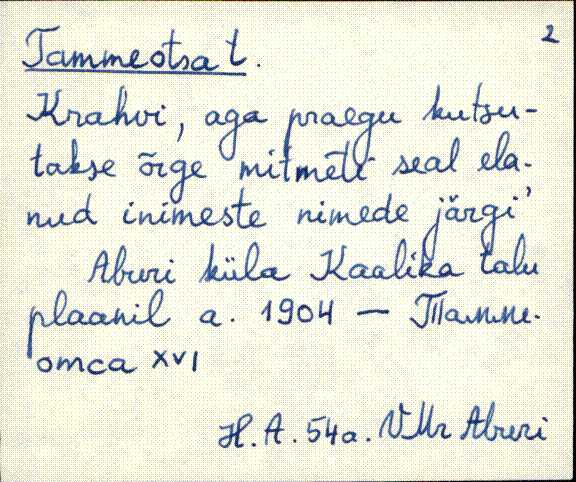 2
Tammeotsa t.
Krahvi, aga praegu kutsu-
takse õrge mitmeti seal ela-
nud inimeste nimede järgi
Aburi küla Kaalika talu
plaanil a. 1904 — Тамме-
отса XVI
H.A. 54a. VMr Aburi